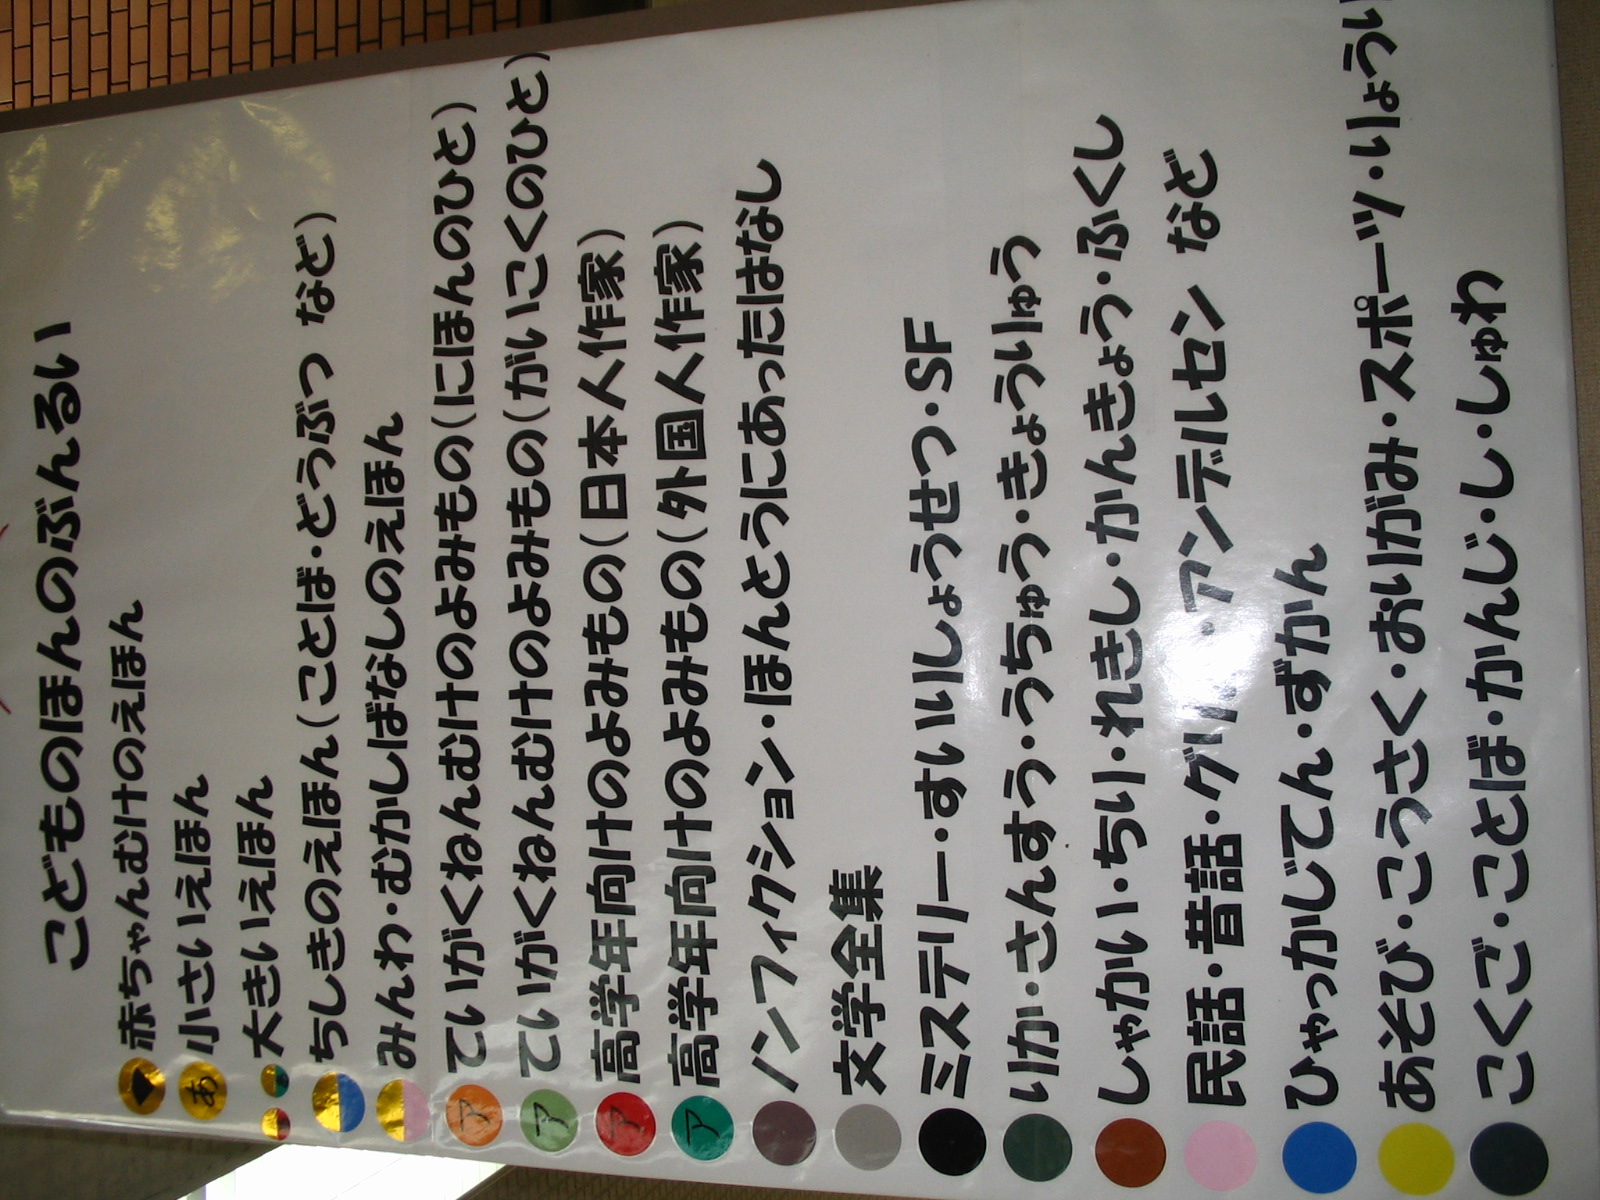 こどものほんのぶんるい
赤ちゃんむけのえほん
あ 小さいえほん
大きいえほん
ちしきのえほん(ことば・どうぶつ など)
みんわ・むかしばなしのえほん
ア ていがくねんむけのよみもの(にほんのひと)
ア ていがくねんむけのよみもの(がいこくのひと)
ア 高学年向けのよみもの(日本人作家)
ア 高学年向けのよみもの(外国人作家)
ノンフィクション・ほんとうにあったはなし
文学全集
ミステリー・すいりしょうせつ・SF
りか・さんすう・うちゅう・きょうりゅう
しゃかい・ちり・れきし・かんきょう・ふくし
民話・昔話・グリム・アンデルセン など
ひゃっかじてん・ずかん
あそび・こうさく・おりがみ・スポーツ・りょうり
こくご・ことば・かんじ・し・しゅわ